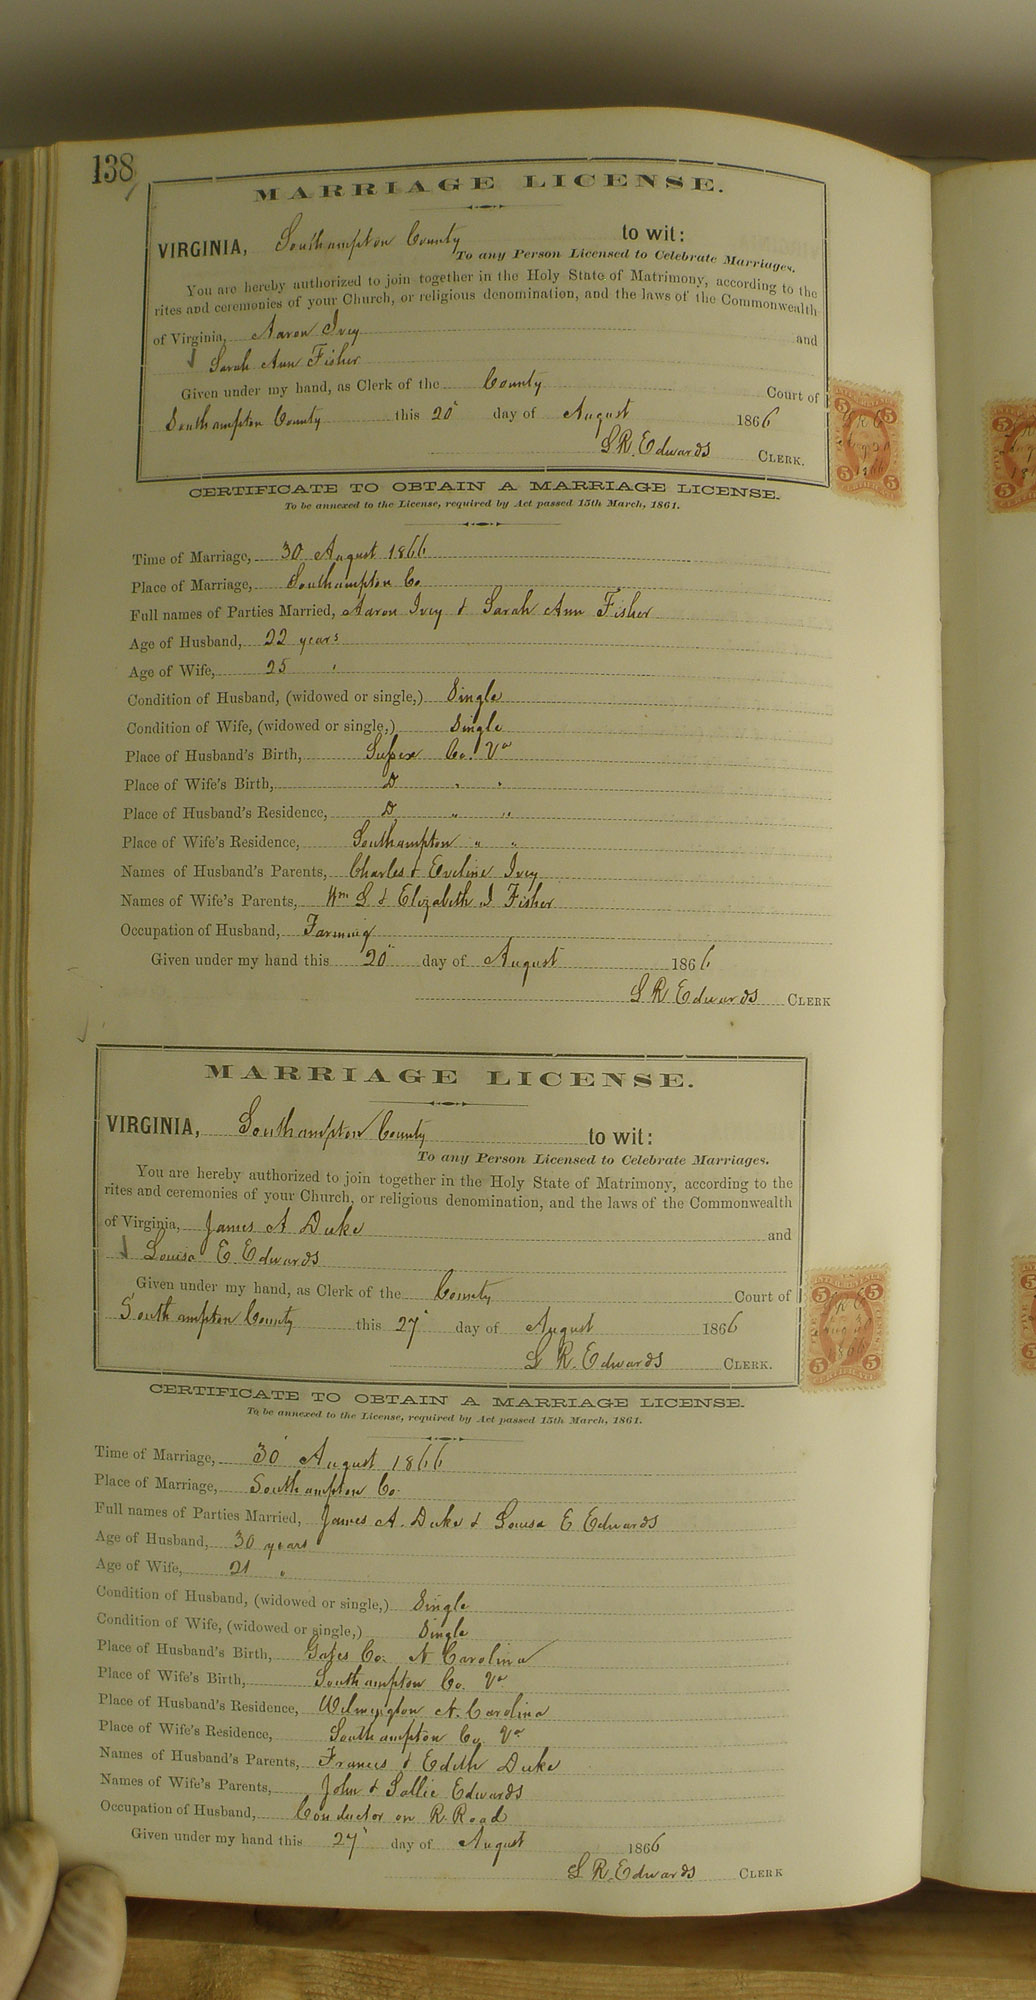 138
MARRIAGE LICENSE.
VIRGINIA, Southampton County to wit:
To any Person Licensed to Celebrate Marriages.
You are hereby authorized to join together in the Holy State of Matrimony, according to the
rites and ceremonies of your Church, or religious denomination, and the laws of the Commonwealth
of Virginia, Aaron Ivey and
Sarah Ann Fisher
Given under my hand, as Clerk of the County Court of
Southampton County this 20" day of August 1866
L R. Edwards CLERK.
CERTIFICATE TO OBTAIN A MARRIAGE LICENSE.
To be annexed to the License, required by Act passed 15th March, 1861.
Time of Marriage, 30 August 1866
Place of Marriage, Southampton Co
Full names of Parties Married, Aaron Ivey & Sarah Ann Fisher
Age of Husband, 22 years
Age of Wife, 25 "
Condition of Husband, (widowed or single,) Single
Condition of Wife, (widowed or single,) Single
Place of Husband's Birth, Sussex Co. Va
Place of Wife's Birth, Do " "
Place of Husband's Residence, Do " "
Place of Wife's Residence, Southampton " "
Names of Husband's Parents, Charles & Eveline Ivey
Names of Wife's Parents, Wm S & Elizabeth J Fisher
Occupation of Husband, Farming
Given under my hand this 20" day of August 1866
L R Edwards CLERK
MARRIAGE LICENSE.
VIRGINIA, Southampton County to wit:
To any Person Licensed to Celebrate Marriages.
You are hereby authorized to join together in the Holy State of Matrimony, according to the
rites and ceremonies of your Church, or religious denomination, and the laws of the Commonwealth
of Virginia, James A Duke and
Louisa E. Edwards
Given under my hand, as Clerk of the County Court of
Southampton County this 27" day of August 1866
L R. Edwards CLERK.
CERTIFICATE TO OBTAIN A MARRIAGE LICENSE.
To be annexed to the License, required by Act passed 15th March, 1861.
Time of Marriage, 30 August 1866
Place of Marriage, Southampton Co.
Full names of Parties Married, James A. Duke & Louisa E Edwards
Age of Husband, 30 years
Age of Wife, 21 "
Condition of Husband, (widowed or single,) Single
Condition of Wife, (widowed or single,) Single
Place of Husband's Birth, Gates Co. N Carolina
Place of Wife's Birth, Southampton Co. Va
Place of Husband's Residence, Wilmington N. Carolina
Place of Wife's Residence, Southampton Co Va
Names of Husband's Parents, Francis & Edith Duke
Names of Wife's Parents, John & Sallie Edwards
Occupation of Husband, Conductor on R. Road
Given under my hand this 27" day of August 1866
L R. Edwards CLERK